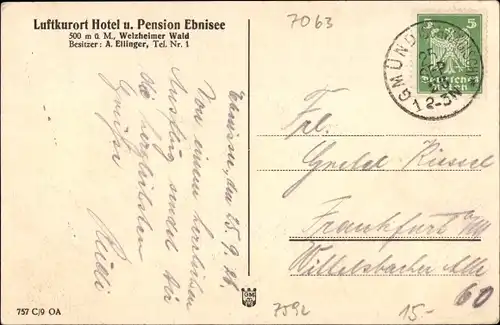 Luftkurort Hotel u. Pension Ebnisee
500 m ü. M., Welzheimer Wald
Besitzer: A. Ellinger, Tel. Nr. 1
7063
Ebnisee, den 25. 9. 26.
Von einem herrlichen
Ausflug sendet dir
die herzlichsten
Grüße
GMÜND
12-3N
5 5
Deutsches Reich
Frl.
Gretel
Frankfurt a/M
Wittelsbacher Allee
60
757 C/9 OA
7592
15.-